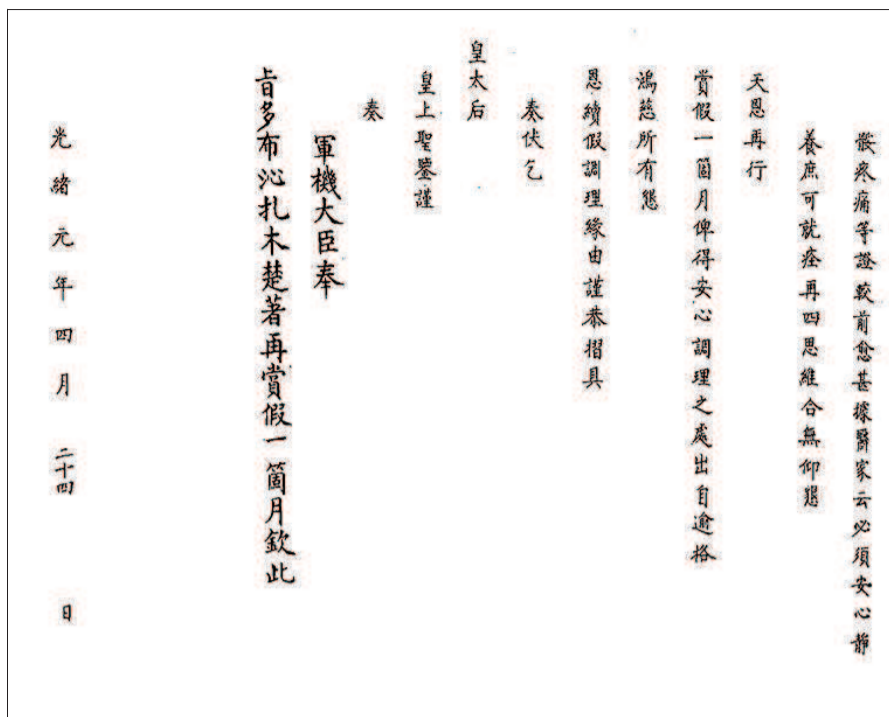 骸疼痛等證較前愈甚據醫家云必須安心靜
養庶可就痊再四思維合無仰懇
天恩再行
賞假一箇月俾得安心調理之處出自逾格
鴻慈所有懇
恩續假調理緣由謹恭摺具
奏伏乞
皇太后
皇上聖鑒謹
奏
軍機大臣奉
旨多布沁扎木楚著再賞假一箇月欽此
光緒元年四月二十四日